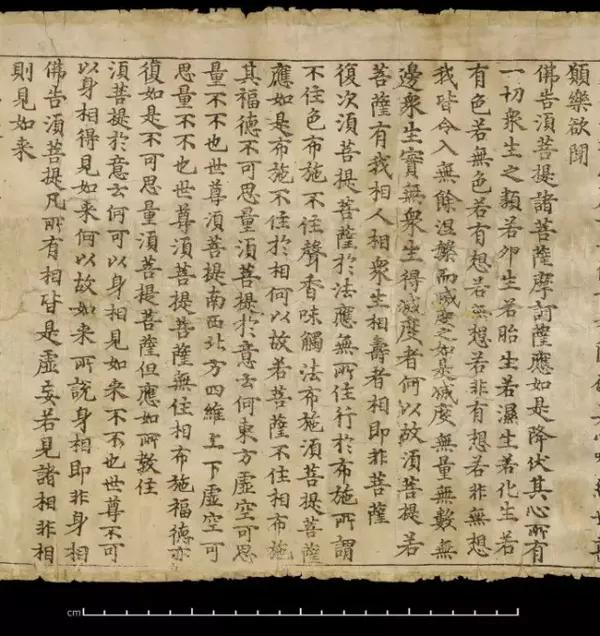 願樂欲聞
佛告須菩提諸菩薩摩訶薩應如是降伏其心所有
一切衆生之類若卵生若胎生若濕生若化生若
有色若無色若有想若無想若非有想若非無想
我皆令入無餘涅槃而滅度之如是滅度無量無數無
邊衆生實無衆生得滅度者何以故須菩提若
菩薩有我相人相衆生相壽者相即非菩薩
復次須菩提菩薩於法應無所住行於布施所謂
不住色布施不住聲香味觸法布施須菩提菩薩
應如是布施不住於相何以故若菩薩不住相布施
其福德不可思量須菩提於意云何東方虛空可思
量不不也世尊須菩提南西北方四維上下虛空可
思量不不也世尊須菩提菩薩無住相布施福德亦
復如是不可思量須菩提菩薩但應如所教住
須菩提於意云何可以身相見如来不不也世尊不可
以身相得見如来何以故如来所說身相即非身相
佛告須菩提凡所有相皆是虛妄若見諸相非相
則見如来
cm